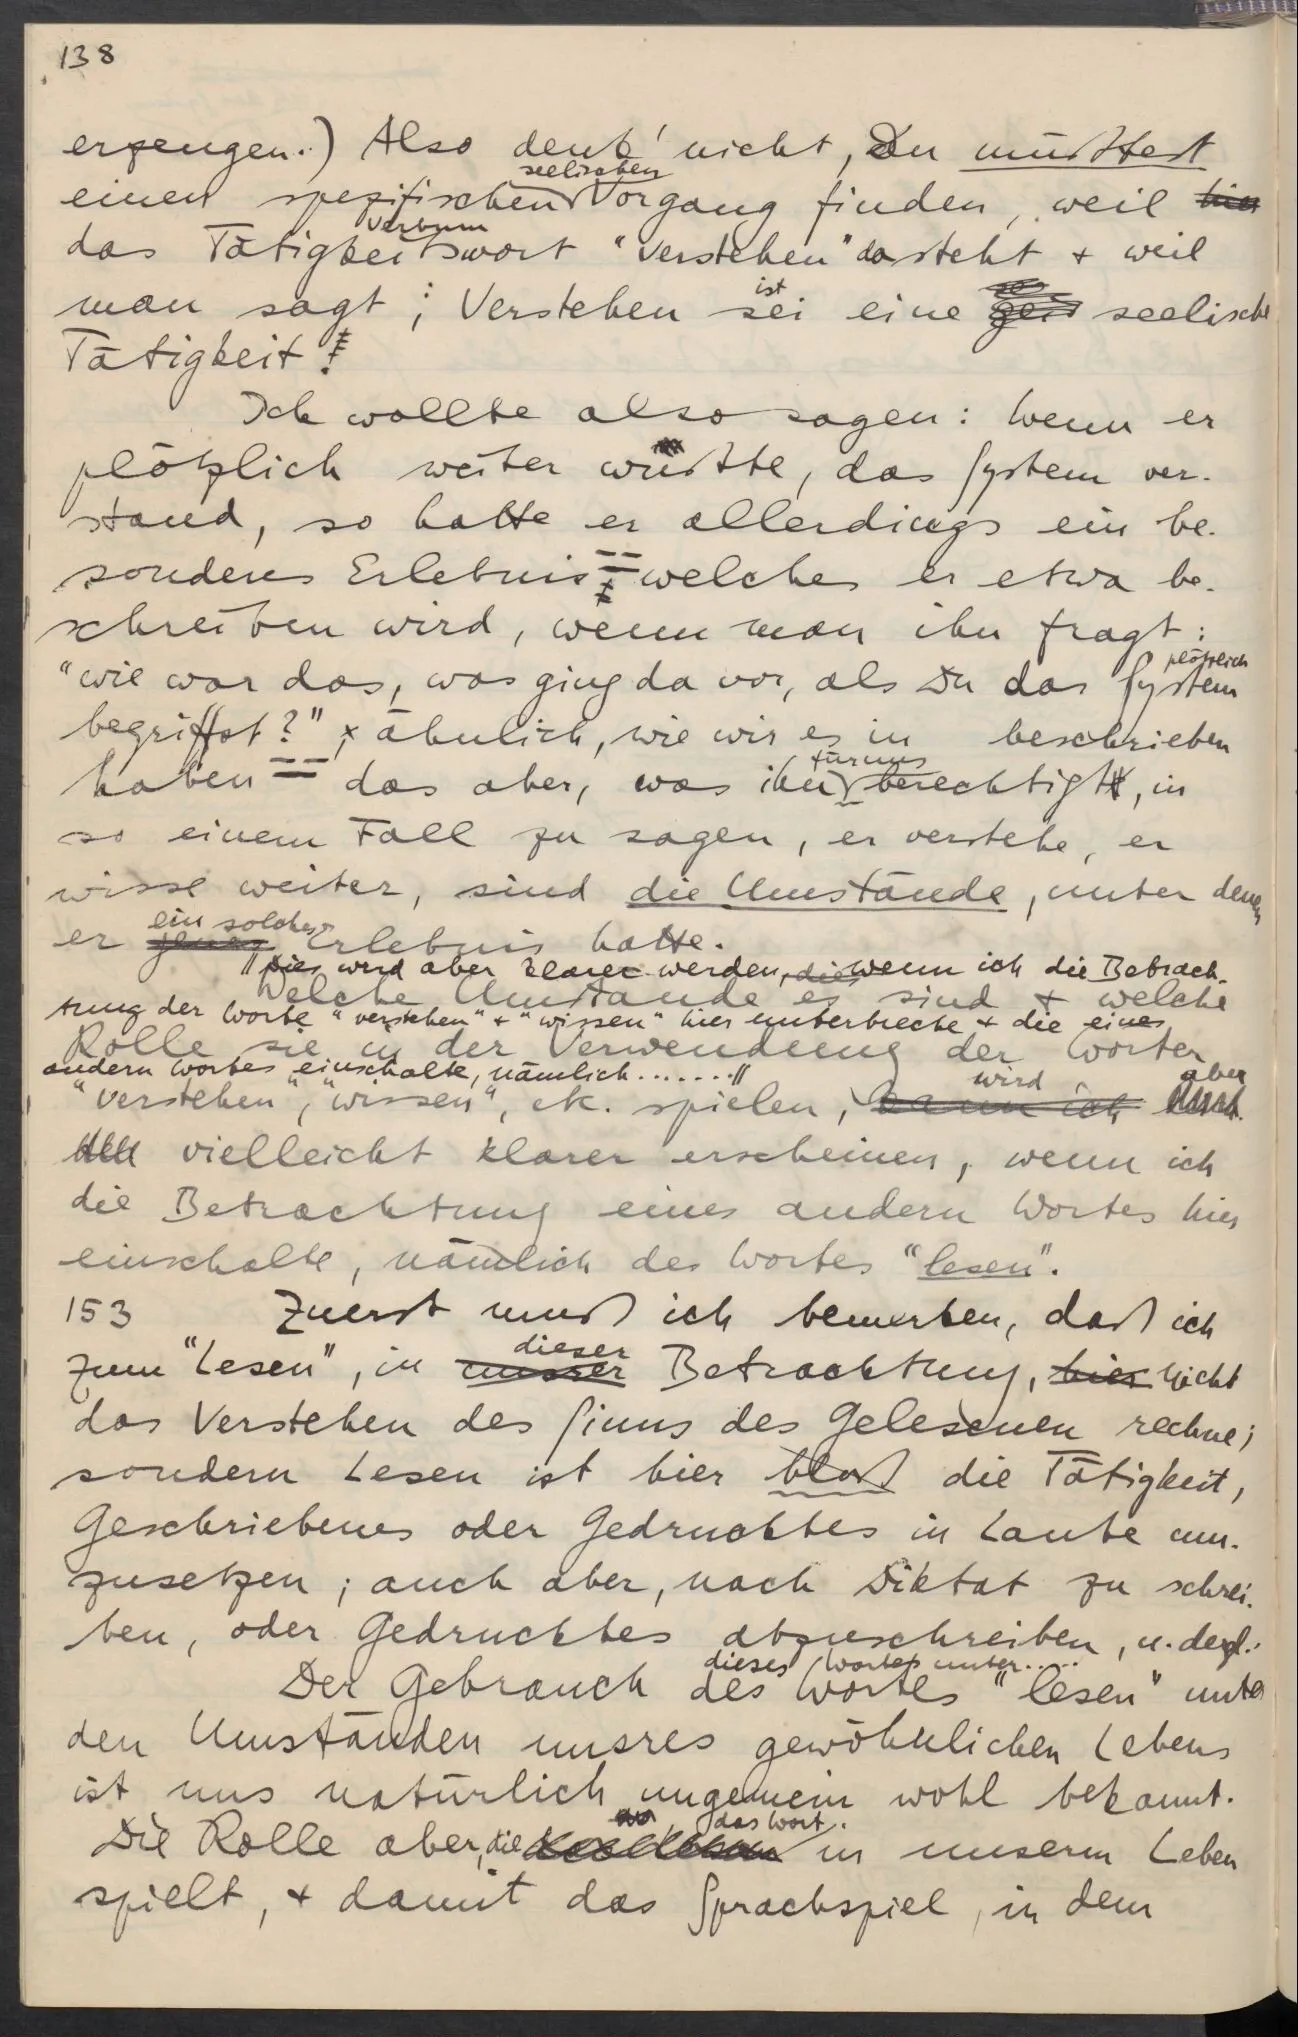 138
erzeugen.) Also denk' nicht, Du müßtest
seelischen
einen spezifischen Vorgang finden, weil hier
Verbum
das Tätigkeitswort "verstehen" dasteht + weil
ist
man sagt; Verstehen sei eine seelische
Tätigkeit!
Ich wollte also sagen: Wenn er
plötzlich weiter wußte, das System ver-
stand, so hatte er allerdings ein be-
sonderes Erlebnis -- welches er etwa be-
schreiben wird, wenn man ihn fragt:
plötzlich
"wie war das, was ging da vor, als Du das System
begriffst?", ähnlich, wie wir es in beschrieben
haben -- 
für uns
das aber, was ihn berechtigt, in
so einem Fall zu sagen, er verstehe, er
wisse weiter, sind die Umstände, unter denen
ein solches
er jenes Erlebnis hatte.
"Dies wird aber klarer werden, die wenn ich die Betrach-
Welche Umstände es sind + welche
tung der Worte "verstehen" + "wissen" hier unterbreche + die eines
Rolle sie in der Verwendung der Wörter
andern Wortes einschalte, nämlich ......."
wird aber
"verstehen", "wissen", etc. spielen, kann ich
vielleicht klarer erscheinen, wenn ich
die Betrachtung eines andern Wortes hier
einschalte, nämlich des Wortes "lesen".
153 Zuerst muß ich bemerken, daß ich
dieser
zum "Lesen", in unsrer Betrachtung, hier nicht
das Verstehen des Sinns des Gelesenen rechne;
sondern Lesen ist hier bloß die Tätigkeit,
Geschriebenes oder Gedrucktes in Laute um-
zusetzen; auch aber, nach Diktat zu schrei-
ben, oder Gedrucktes abzuschreiben, u. dergl.:
dieses Wortes unter.....
Der Gebrauch des Wortes "lesen" unter
den Umständen unsres gewöhnlichen Lebens
ist uns natürlich ungemein wohl bekannt.
das Wort.
Die Rolle aber, die in unserm Leben
spielt, + damit das Sprachspiel, in dem